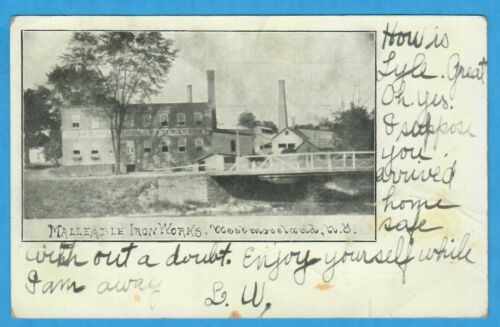 How is
Lyle. Great
Oh yes.
I suppose
you
arrived
home
safe
MALLEABLE IRON WORKS, Westmoreland, N.Y.
with out a doubt. Enjoy yourself while
I am away
L. W.